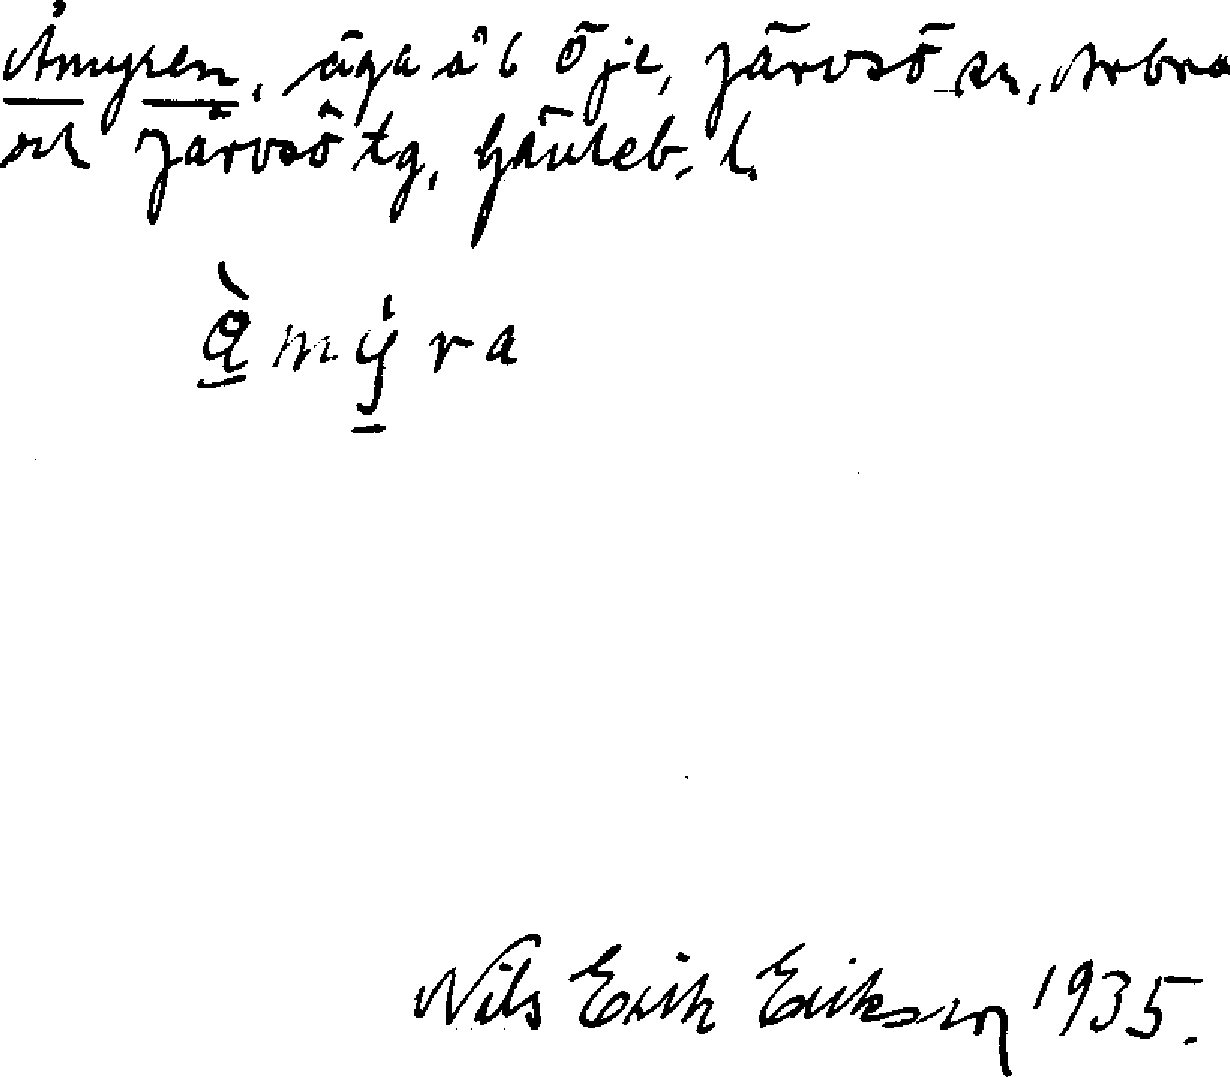 Åmyren, äga å b Öje, Järvsö sn, Arbrå
och Järvsö tg, Gävleb. l.
å̀ m y̍ r a
Nils Erik Erikson 1935.